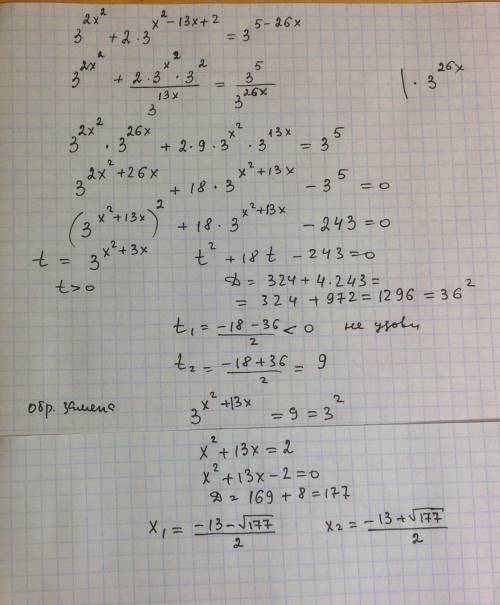 3^{2x^2} + 2 · 3^{x^2 - 13x + 2} = 3^{5 - 26x}
3^{2x^2} + \frac{2 · 3^{x^2} · 3^2}{3^{13x}} = \frac{3^5}{3^{26x}} | · 3^{26x}
3^{2x^2} · 3^{26x} + 2 · 9 · 3^{x^2} · 3^{13x} = 3^5
3^{2x^2 + 26x} + 18 · 3^{x^2 + 13x} - 3^5 = 0
(3^{x^2 + 13x})^2 + 18 · 3^{x^2 + 13x} - 243 = 0
t = 3^{x^2 + 3x} t^2 + 18t - 243 = 0
t > 0 D = 324 + 4 · 243 =
= 324 + 972 = 1296 = 36^2
t_1 = \frac{-18 - 36}{2} < 0 не удовл
t_2 = \frac{-18 + 36}{2} = 9
обр. замена 3^{x^2 + 13x} = 9 = 3^2
x^2 + 13x = 2
x^2 + 13x - 2 = 0
D = 169 + 8 = 177
x_1 = \frac{-13 - \sqrt{177}}{2} x_2 = \frac{-13 + \sqrt{177}}{2}